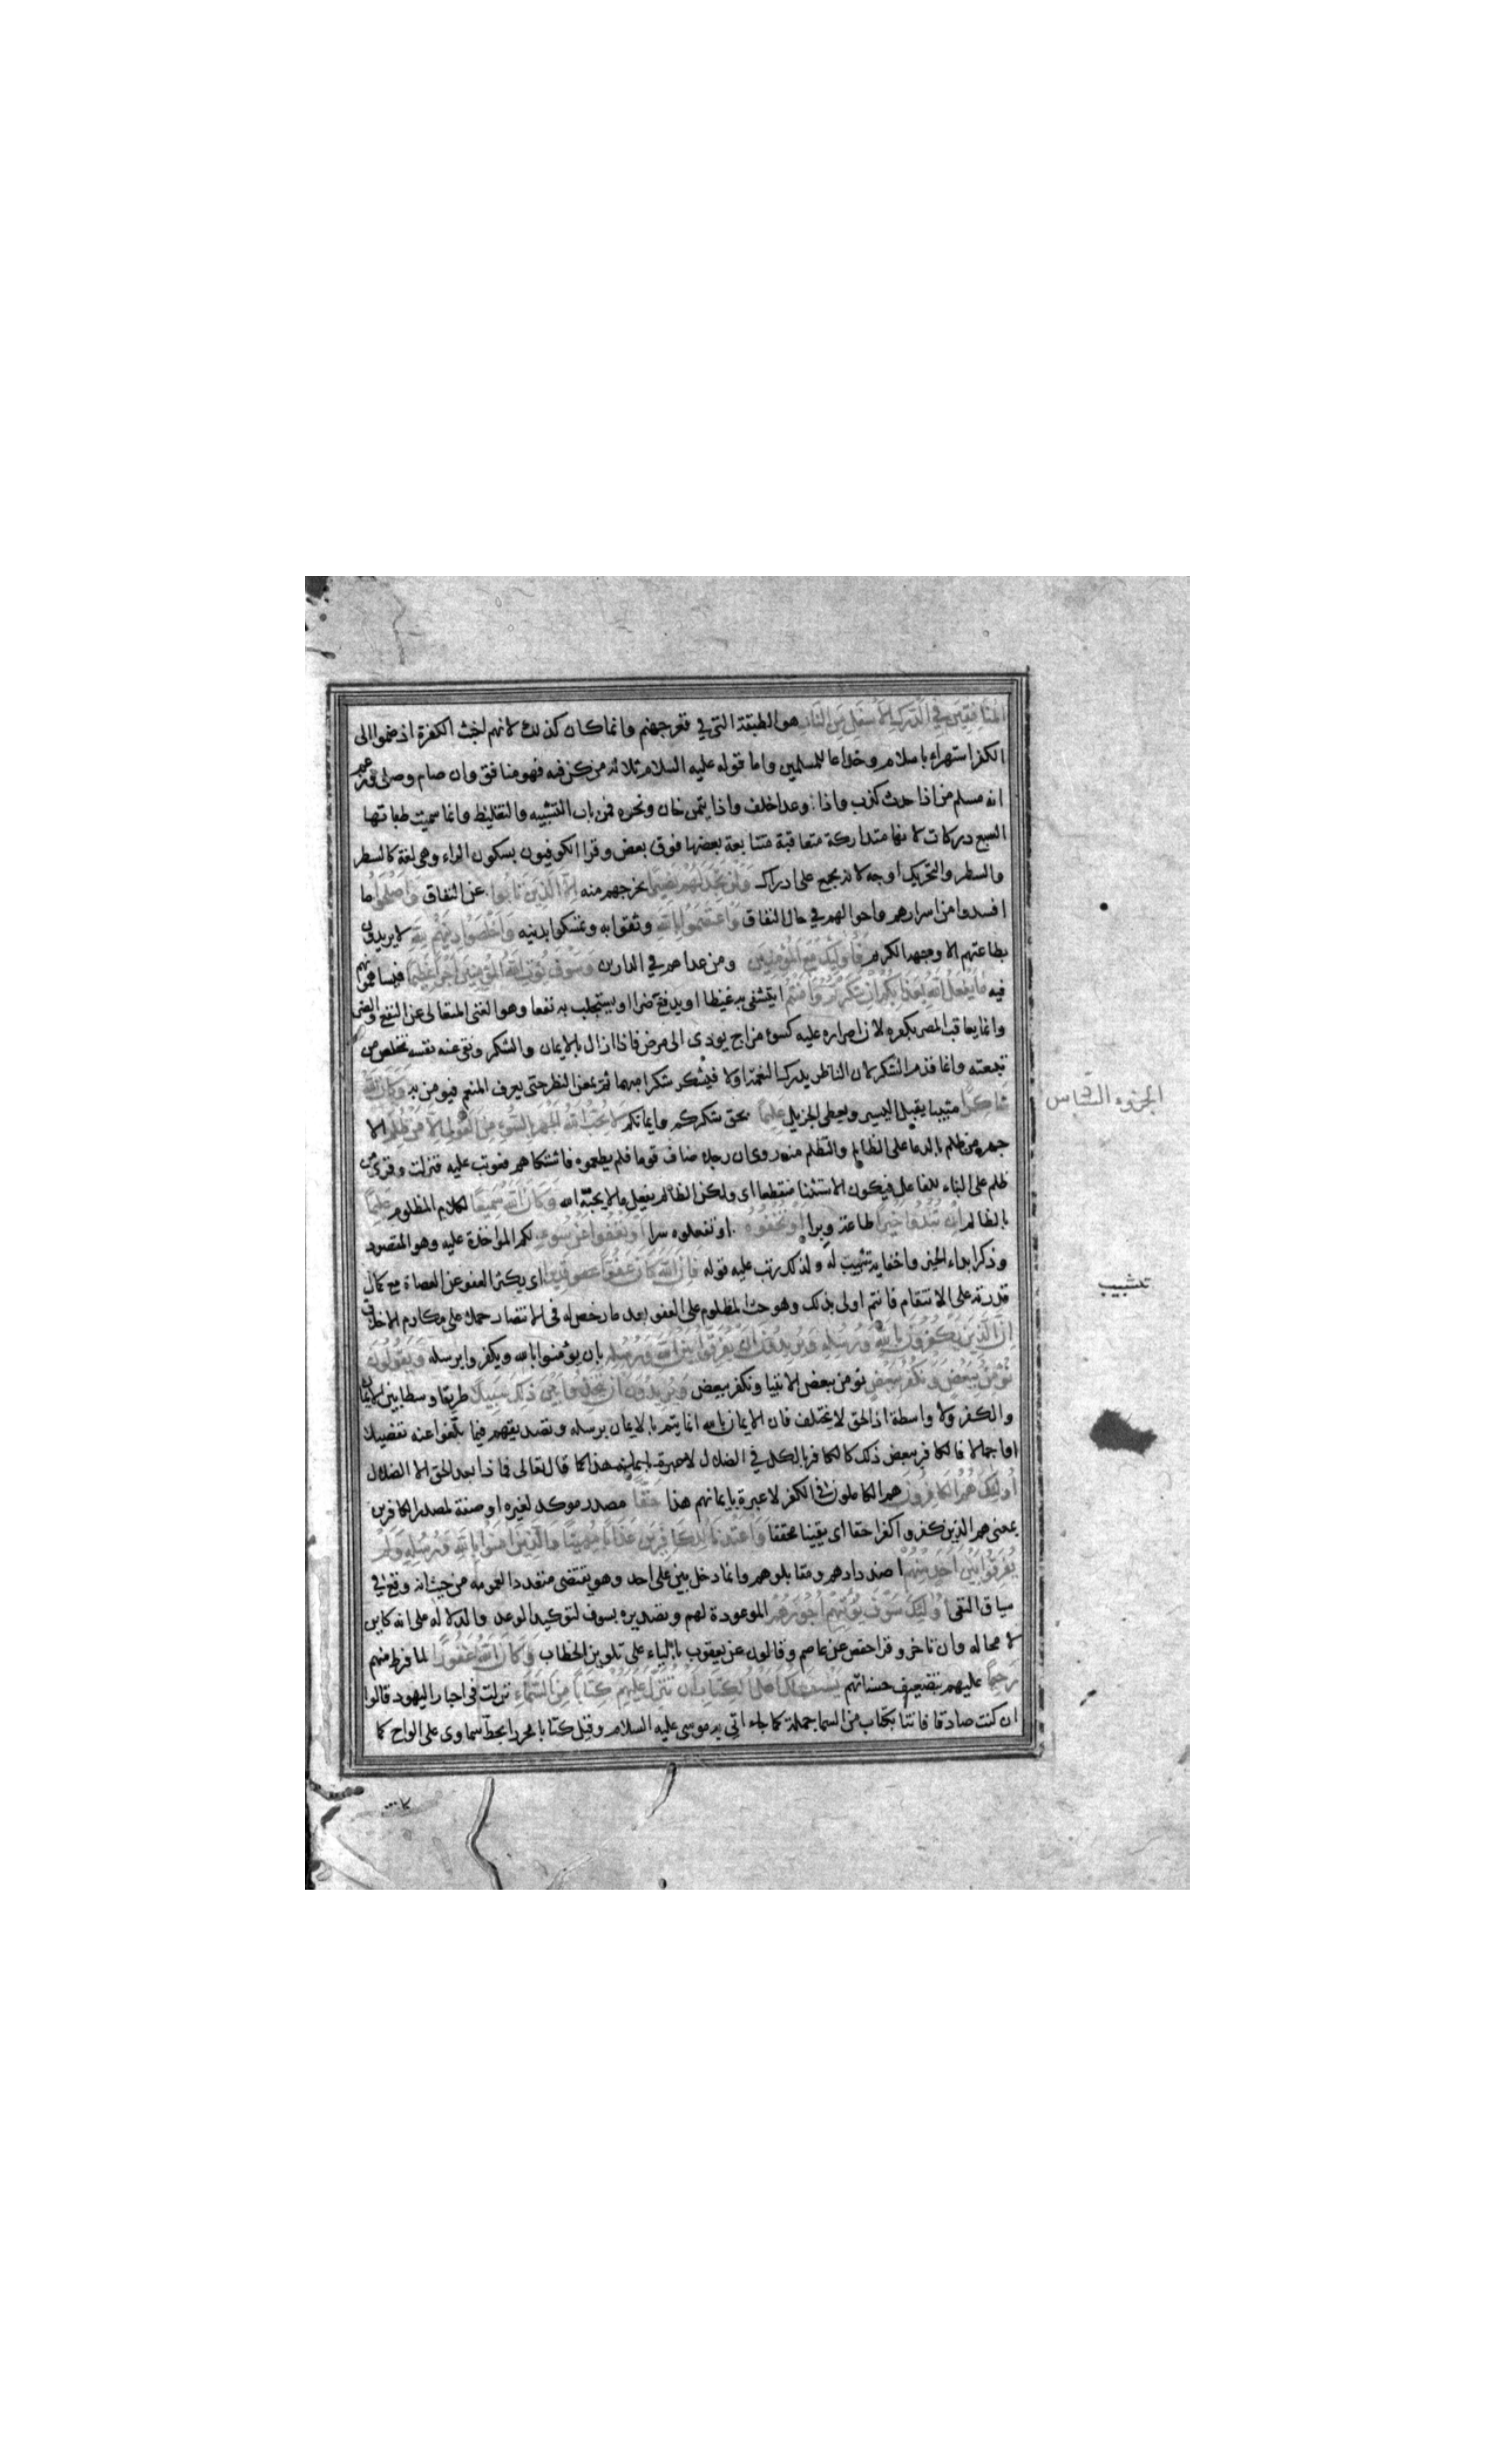 المنافقين في الدرك الأسفل من النار هو الطبقة التي في قعر جهنم وانما كان كذلك لانهم اخبث الكفرة اذ ضموا الى
الكفر استهزاء باسلام وخداعا للمسلمين واما قوله عليه السلام ثلاث من كن فيه فهو منافق وان صام وصلى وزعم
انه مسلم من اذا حدث كذب واذا وعد اخلف واذا يتمن خان ونحوه فمن باب التشبيه والتغليظ وانما سميت طبقاتها
السبع دركات لانها متداركة متعاقبة متتابعة بعضها فوق بعض وقرا الكوفيون بسكون الراء وهي لغة كالسطر
والسطر والتحريك اوجه لانه يجمع على ادراك ولن تجد لهم نصيرا يخرجهم منه الا الذين تابوا عن النفاق واصلحوا ما
افسدوا من اسرارهم واحوالهم في حال النفاق واعتصموا بالله وثقوا به وتمسكوا بدينه واخلصوا دينهم لله لا يريدون
بطاعتهم الا وجهه الكريم فاولئك مع المؤمنين ومن عداهم في الدارين وسوف يؤت الله المؤمنين اجرا عظيما فيساهمونهم
فيه ما يفعل الله بعذابكم ان شكرتم وامنتم ايتشفى به غيظا او يدفع ضرا او يستجلب به نفعا وهو الغني المتعالى عن النفع والضر
وانما يعاقب المصر بكفره لان اصراره عليه كسوء مزاج يودى الى مرض فاذا ازال بالايمان والشكر ونقى عنه نفسه تخلص من
تبعته وانما قدم الشكر لان الناظر يدرك النعمة اولا فيشكر شكرا مبهما ثم يمعن النظر حتى يعرف المنعم فيومن به وكان الله
شاكرا مثيبا يقبل اليسير ويعطى الجزيل عليما بحق شكركم وايمانكم لا يحب الله الجهر بالسوء من القول الا من ظلم الا
جهر من ظلم بالدعا على الظالم والتظلم منه روى ان رجلا ضاف قوما فلم يطعموه فاشتكاهم فعوتب عليه فنزلت وقرئ من
ظلم على البناء للفاعل فيكون الاستثنا منقطعا اى ولكن الظالم يفعل ما لا يحبه الله وكان الله سميعا لكلام المظلوم عليما
بالظالم ان تبدوا خيرا طاعة وبرا او تخفوه او تفعلوه سرا او تعفوا عن سوء لكم المواخذة عليه وهو المقصود
وذكر ابداء الخير واخفايه تشبيب له ولذلك رتب عليه قوله فان الله كان عفوا قديرا اى يكثر العفو عن العصاة مع كمال
قدرته على الانتقام فانتم اولى بذلك وهو حث المظلوم على العفو بعد ما رخص له فى الانتصار حملا على مكارم الاخلاق
ان الذين يكفرون بالله ورسله ويريدون ان يفرقوا بين الله ورسله بان يؤمنوا بالله ويكفروا برسله ويقولون
نؤمن ببعض ونكفر ببعض نومن ببعض الانبيا ونكفر ببعض ويريدون ان يتخذوا بين ذلك سبيلا طريقا وسطا بين الايمان
والكفر ولا واسطة اذ الحق لا يختلف فان الايمان بالله انما يتم بالايمان برسله وتصديقهم فيما بلغوا عنه تفصيلا
او اجمالا فالكافر ببعض ذلك كالكافر بالكل في الضلال كما قال تعالى فماذا بعد الحق الا الضلال
اولئك هم الكافرون هم الكاملون فى الكفر لا عبرة بايمانهم هذا حقا مصدر موكد لغيره او صفة لمصدر الكافرين
بمعنى هم الذين كفروا كفرا حقا اى يقينا محققا واعتدنا للكافرين عذابا مهينا والذين امنوا بالله ورسله ولم
يفرقوا بين احد منهم اضدادهم ومقابلوهم وانما دخل بين على احد وهو يقتضى متعددا لعمومه من حيث انه وقع في
سياق النفى اولئك سوف يؤتيهم اجورهم الموعودة لهم وتصديره بسوف لتوكيد الوعد والدلالة على انه كاين
لا محاله وان تاخر وقرا حفص عن عاصم وقالون عن يعقوب بالياء على تلوين الخطاب وكان الله غفورا لما فرط منهم
رحيما عليهم بتضعيف حسناتهم يسئلك اهل الكتاب ان تنزل عليهم كتابا من السماء نزلت فى احبار اليهود قالوا
ان كنت صادقا فاتنا بكتاب من السما جملة كما جاء اتى به موسى عليه السلام وقيل كتابا محررا بخط سماوى على الواح كما
الجزوء السادس
تشبيب